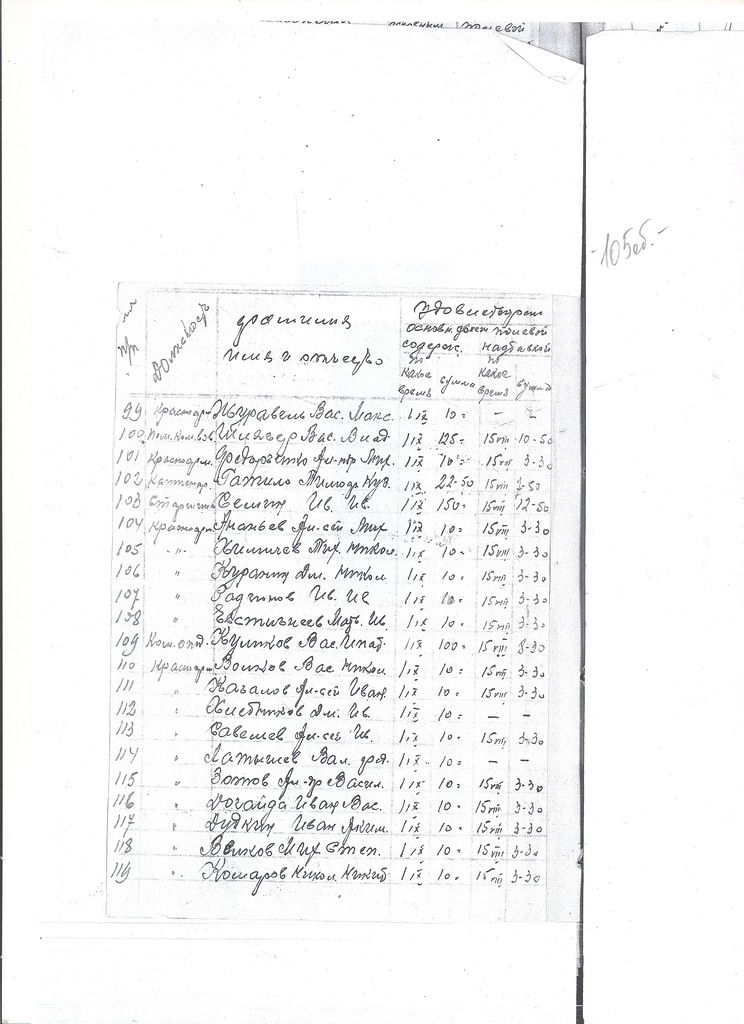 полевой
-105об.-
№№ п/п Должность фамилия имя и отчество Удовлетворен
основн. полевой
содерж. надбавкой
по какое время сумма по какое время сумма
99 Красноар. Журавель Вас. Макс. 1 IX 10= – –
100 Пом. ком. взв. Вас. Влад. 1 IX 125= 15 VIII 10-50
101 Красноарм. Федорченко Ал-ндр Мих. 1 IX 10= 15 VIII 3-30
102 Гажило Куз. 1 IX 22-50 15 VIII
103 Старшина Селин Ив. Ив. 1 IX 150= 15 VIII 12-50
104 Красноарм. Ананьев Ал-сей Мих 1 IX 10= 15 VIII 3-30
105 -"- Химичев Тих. Никол. 1 IX 10= 15 VIII 3-30
106 " Куракин Дм. Никол. 1 IX 10= 15 VIII 3-30
107 " Радионов Ив. Ив 1 IX 10= 15 VIII 3-30
108 " Евстигнеев Матв. Ив. 1 IX 10= 15 VIII 3-30
109 Ком. отд. Куликов Вас. Ипат. 1 IX 100= 15 VIII 8-30
110 Красноарм Волков Вас Никол. 1 IX 10= 15 VIII 3-30
111 " Качалов Ал-сей Иван. 1 IX 10= 15 VIII 3-30
112 " Хлебников Дм. Ив. 1 IX 10= – –
113 " Савелев Ал-сей Ив. 1 IX 10= 15 VIII 3-30
114 " Латышев Вал. Фед. 1 IX 10= – –
115 " Зотов Ал-др Васил. 1 IX 10= 15 VIII 3-30
116 " Догайда Иван Вас. 1 IX 10= 15 VIII 3-30
117 " Дудкин Иван Яким. 1 IX 10= 15 VIII 3-30
118 " Волков Мих Степ. 1 IX 10= 15 VIII 3-30
119 " Комаров Никол. Никит. 1 IX 10= 15 VIII 3-30